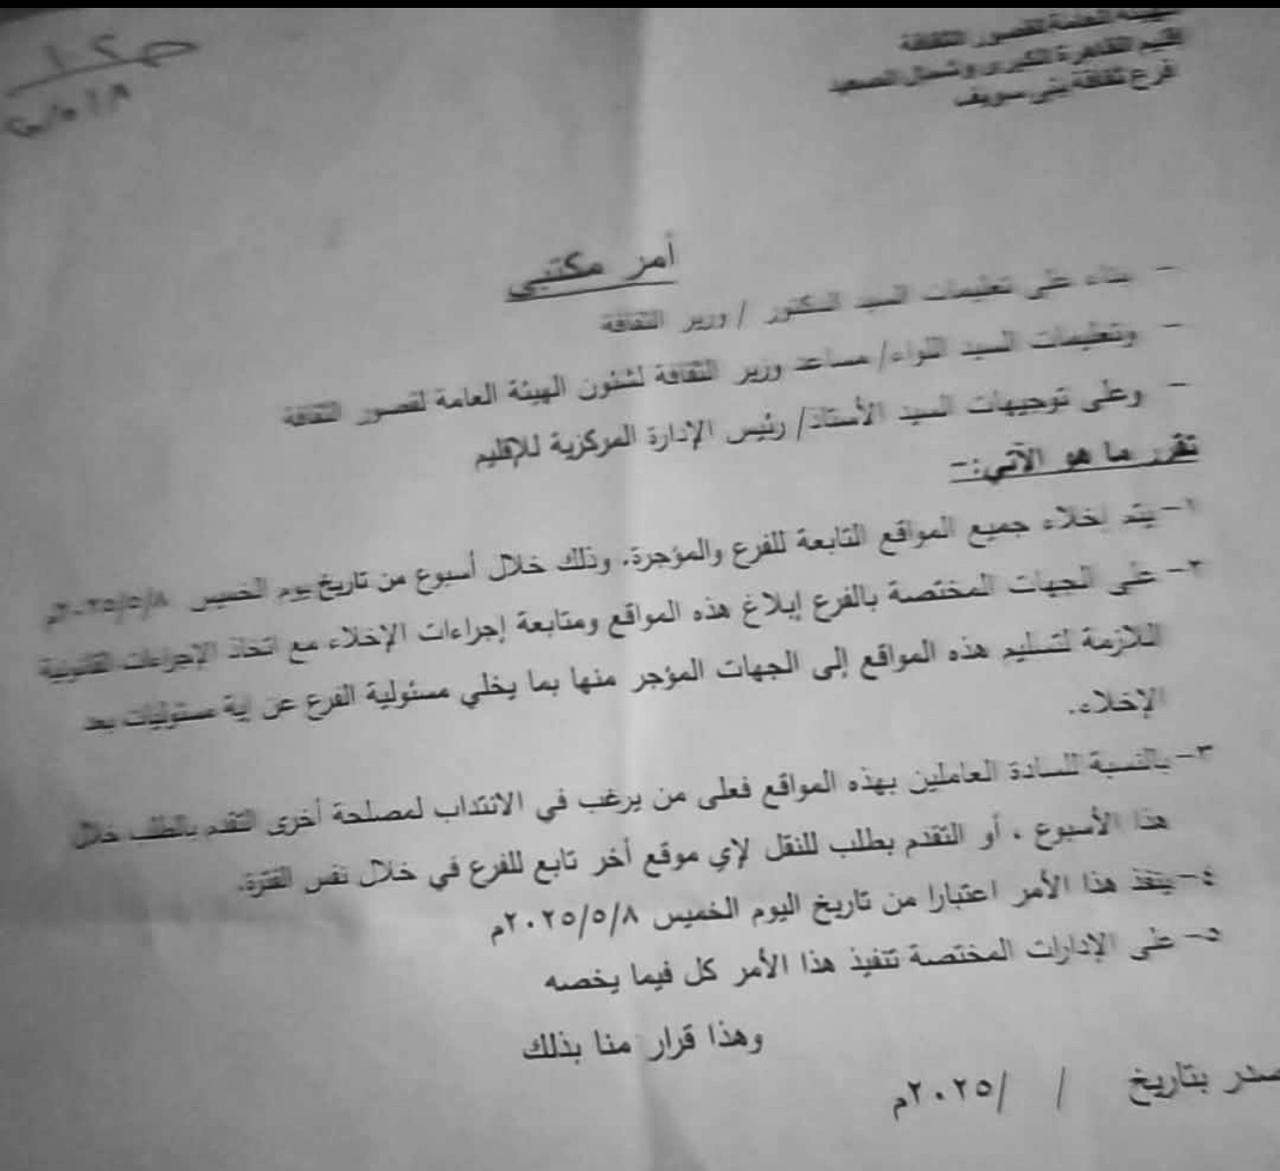 الهيئة العامة لقصور الثقافة
إقليم القاهرة الكبرى وشمال الصعيد
فرع ثقافة بنى سويف
أمر مكتبي
- بناء على تعليمات السيد الدكتور / وزير الثقافة
- وتعليمات السيد اللواء/ مساعد وزير الثقافة لشئون الهيئة العامة لقصور الثقافة
- وعلى توجيهات السيد الأستاذ/ رئيس الإدارة المركزية للإقليم
تقرر ما هو الآتي:-
١- يتم إخلاء جميع المواقع التابعة للفرع والمؤجرة، وذلك خلال أسبوع من تاريخ يوم الخميس ٢٠٢٥/٥/٨م
٢- على الجهات المختصة بالفرع إبلاغ هذه المواقع ومتابعة إجراءات الإخلاء مع اتخاذ الإجراءات القانونية
اللازمة لتسليم هذه المواقع إلى الجهات المؤجر منها بما يخلي مسئولية الفرع عن إية مسئوليات بعد
الإخلاء.
٣- بالنسبة للسادة العاملين بهذه المواقع فعلى من يرغب في الانتداب لمصلحة أخرى التقدم بالطلب خلال
هذا الأسبوع ، أو التقدم بطلب للنقل لإي موقع أخر تابع للفرع في خلال نفس الفترة.
٤- ينفذ هذا الأمر اعتبارا من تاريخ اليوم الخميس ٢٠٢٥/٥/٨م
٥- على الإدارات المختصة تنفيذ هذا الأمر كل فيما يخصه
وهذا قرار منا بذلك
صدر بتاريخ / /٢٠٢٥م